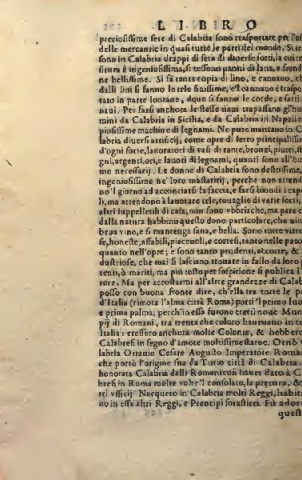 LIBRO
preciosissime sete di Calabria sono trasportate per l'
delle mercantie in quasi tutte le parti del mondo. Si te
sono in Calabria drappi di seta di diuerse sorti, la cui te
è ingeniosissima, si tessono panni di lana, e
delle benissimo. Si fa tanta copia di lino, e cannauo, che
dalli lini si fanno le tele finissime, e'l cannauo è traspor
tato in parte lontana, doue si fanno le corde,
naui. Per farsi anchora le stesse naui trapassano gl'huo
mini da Calabria in Sicilia, e da Calabria in Napoli
piosissime machine di legnami. Ne pure mancano in Ca
labria diuersi artefici, come opre di ferro principalissi
d'ogni sorte, lauoratori di vasi di rame, bronzi, piutti, st
gni, argenti, ori, e lauori di legnami, quanti sono all'huo
mo necessarij. Le donne di Calabria sono destrissime,
ingeniosissime ne' loro mastaritij, perche non attend
no'l giorno ad acconciarsi la faccia, e farsi biondi i cape
li, ma attendono à lauorare tele, touaglie di varie sorti,
altri suppelletili di casa, non sono vbriache, ma pare c
dalla natura habbino questo dono particolare, che niu
beua vino, e si mantenga sana, e bella. Sono tutte vittu
se, honeste, affabili, piaceuoli, e cortesi, tanto nelle paro
quanto nell'opre; e sono tanto prudenti, accorte, &
dustriose, che mai si lasciano trouare in fallo da loro p
renti, ò mariti, ma più tosto per sospitione si publica l'
rore. Ma per accostarmi all'altre grandezze di Calab
posso con buona fronte dire, ch'ella tra tutte le p
d'Italia (rimota l'alma città Roma) portò 'l primo luo
e prima palma; perch'in essa furono eretti noue Mun
pij di Romani, tra trenta che coloro haueuano in te
Italia; eressero anchora molte Colonie, & hebbero
Calabresi in segno d'amore moltissime statue. Ornò
labria Ottauio Cesare Augusto Imperatore Roman
che portò l'origine sua da Turio città di Calabria.
honorata Calabria dalli Romani con hauer dato à C
bresi in Roma molte volte'l consolato, la pretura, &
tri vfficij. Nacquero in Calabria molti Reggi, habit
no in essa altri Reggi, e Prencipi forastieri. Fù ador
quest